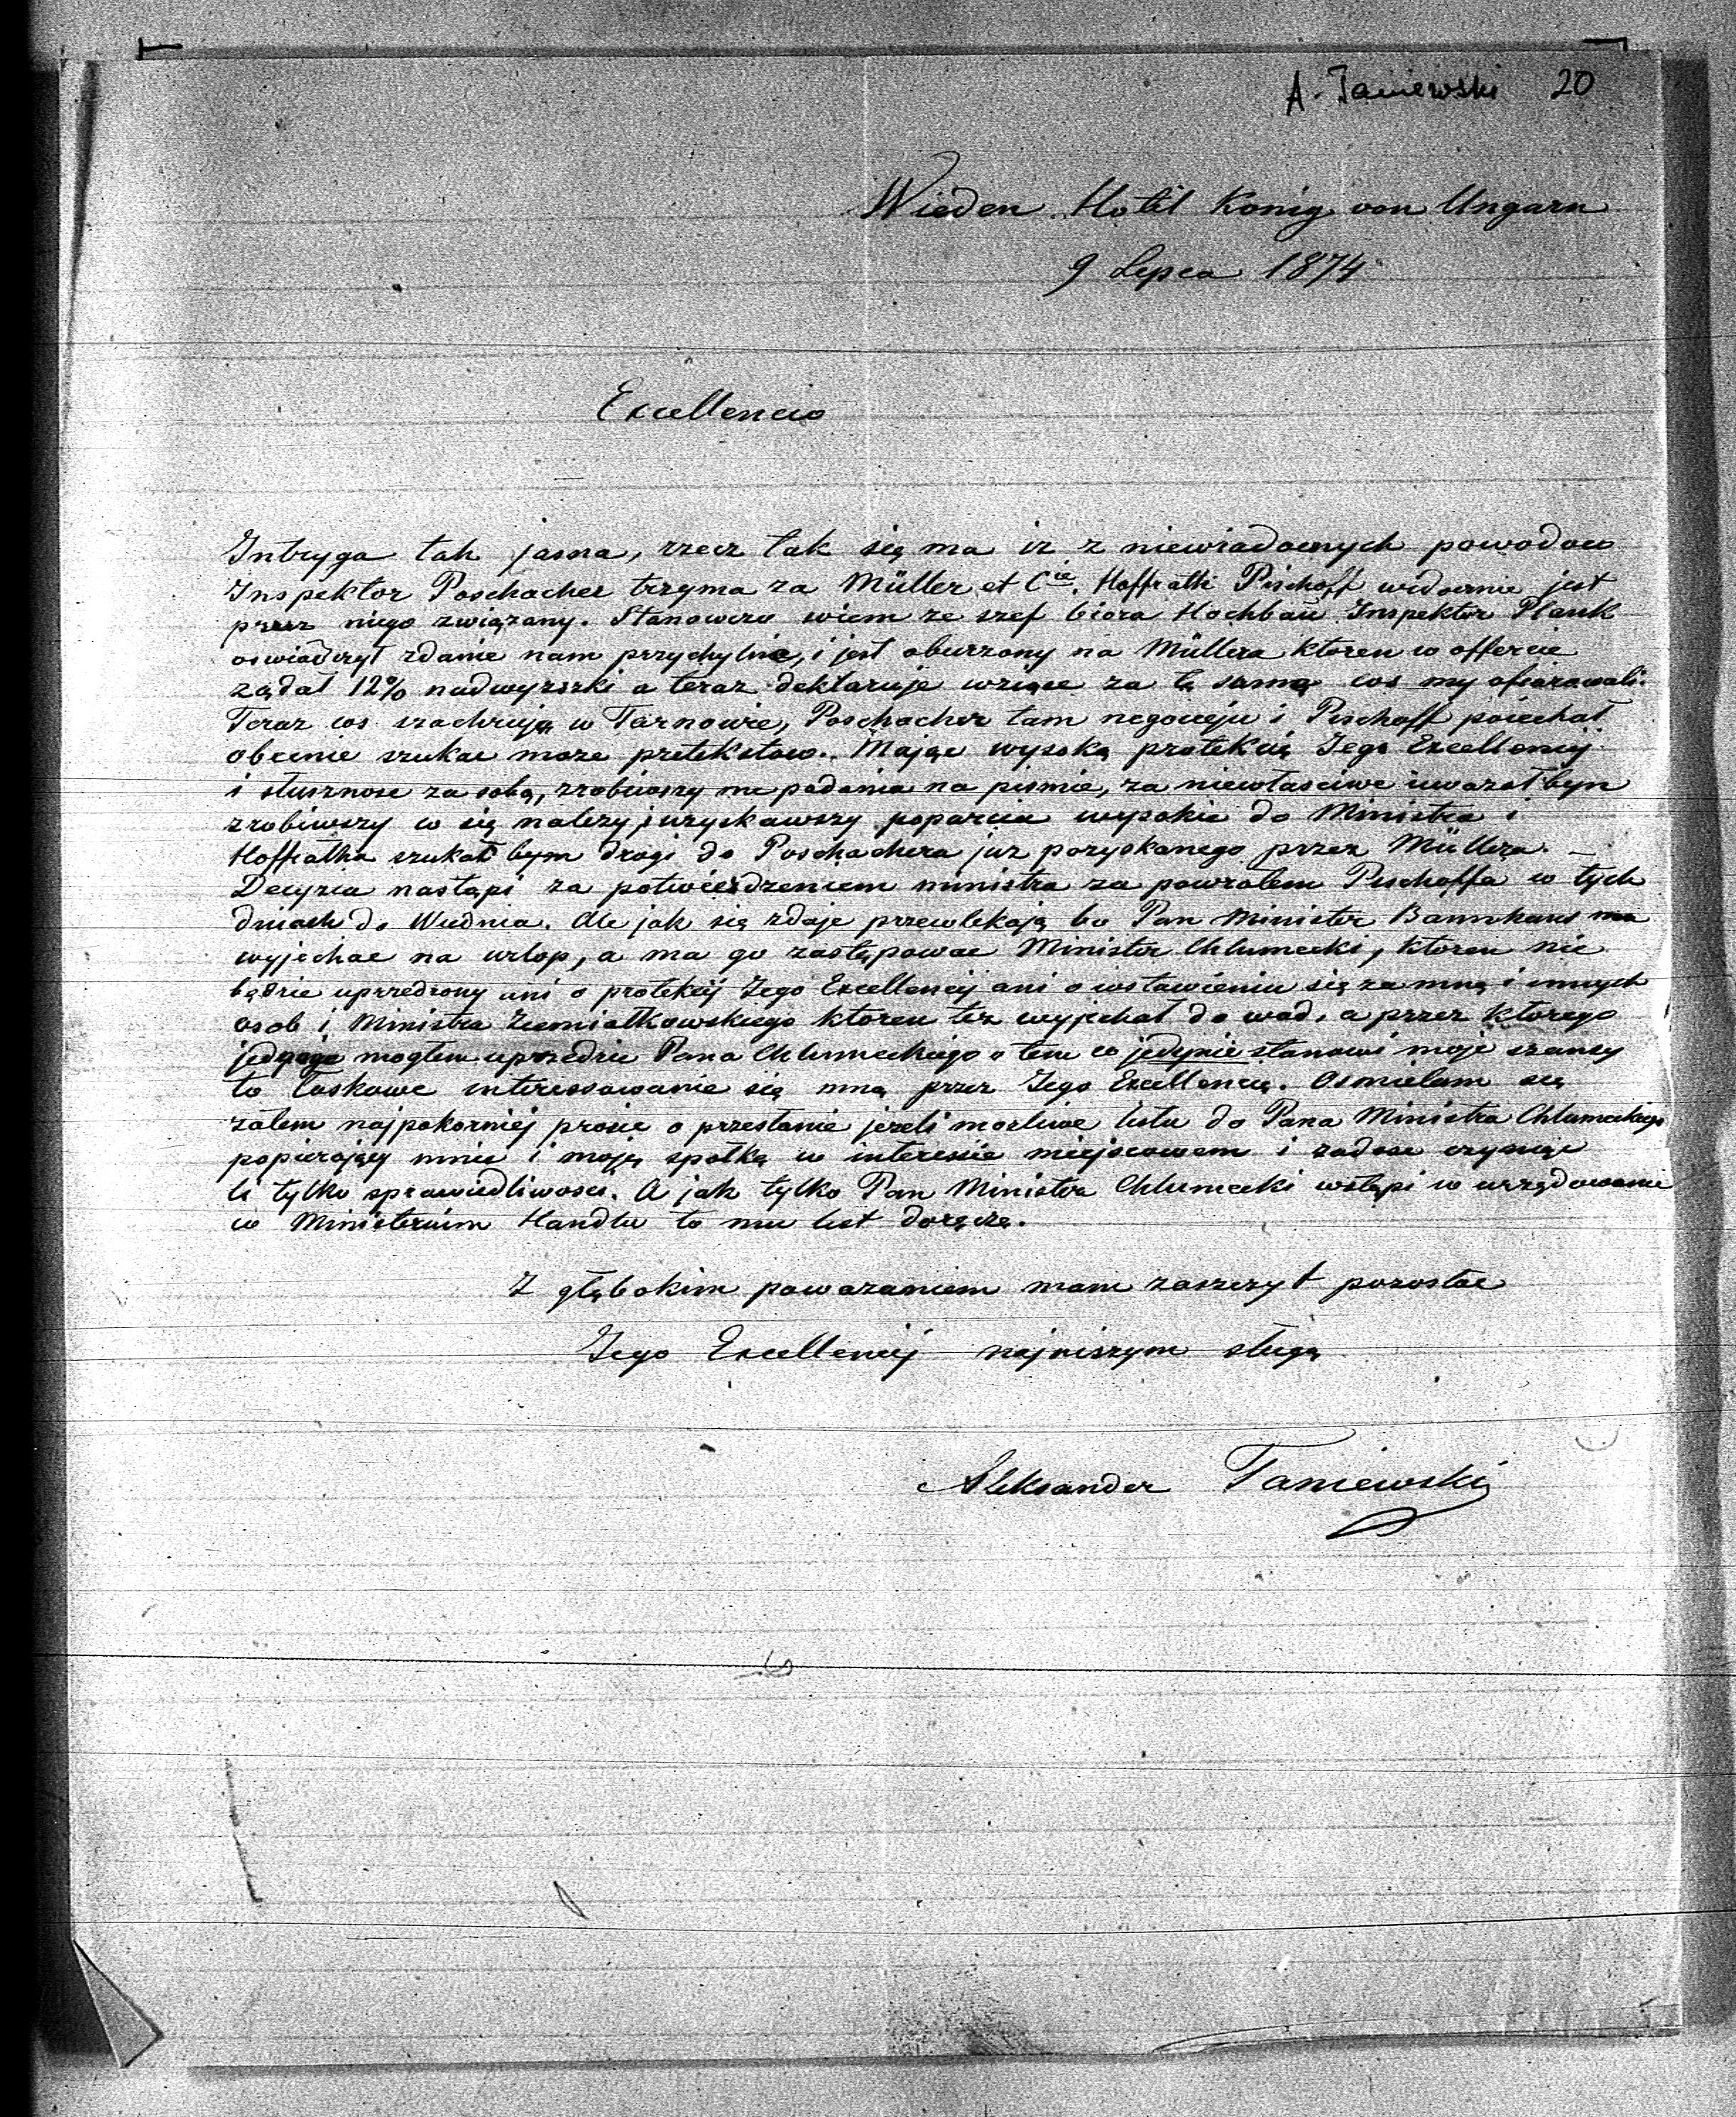 A. Taniewski 20
Wieden Hotel König von Ungarn
9 Lipca 1874
Excellencio
Intryga tak jasna, rzecz tak się ma iz z niewiadomych powodow
Inspektor Poschacher trzyma za Müller et Cie. Hoffrath Pischoff widocznie jest
przez niego związany. Stanowczo wiem ze szef biora Hochbau Inspektor Plank
oswiadczył zdanie nam przychylne, i jest oburzony na Müllera ktoren w offercie
ządał 12% nadwyzszki a teraz deklaruje wziąsc za tą samą cos my ofiarowali.
Teraz cos szachrują w Tarnowie, Poschacher tam negocyuje i Pischoff poiechał
obecnie szukac moze pretekstow. Mając wysoką protekcią Jego Excellencij
i słusznosc za sobą, zrobiwszy me podania na pismie, za niewłasciwe uwazał bym
zrobiwszy co się nalezy, i uzyskawszy poparcia wysokie do Ministra i
Hoffratha szukał bym drogi do Poschachera juz pozyskanego przez Müllera. —
Decyzia nastąpi za potwierdzeniem ministra za powrotem Pischoffa w tych
dniach do Wiednia. Ale jak się zdaje przewlekają bo Pan Minister Bannhans ma
wyjechac na urlop, a ma go zastępowac Minister Chlumecki, ktoren nie
będzie uprzedzony ani o protekcij Jego Excellencij ani o wstawieniu się za mną i innych
osob i Ministra Ziemiałkowskiego ktoren tez wyjechał do wod, a przez ktorego
mogłem uprzedzic Pana Chlumeckiego o tem co jedynie stanowi moje szansy
to łaskawe interessowanie się mną przez Jego Excellencią. Osmielam się
zatem najpokorniej prosic o przesłanie jezeli mozliwe listu do Pana Ministra Chlumeckiego
popierający mnie i moją społką w interesie miejscowem i zadosc czyniąc
li tylko sprawiedliwosci. A jak tylko Pan Minister Chlumecki wstąpi w urzędowanie
w Ministerium Handlu to mu list doręczę.
Z głębokim powazaniem mam zaszczyt pozostac
Jego Excellencij najniszym sługą
Aleksander Taniewski